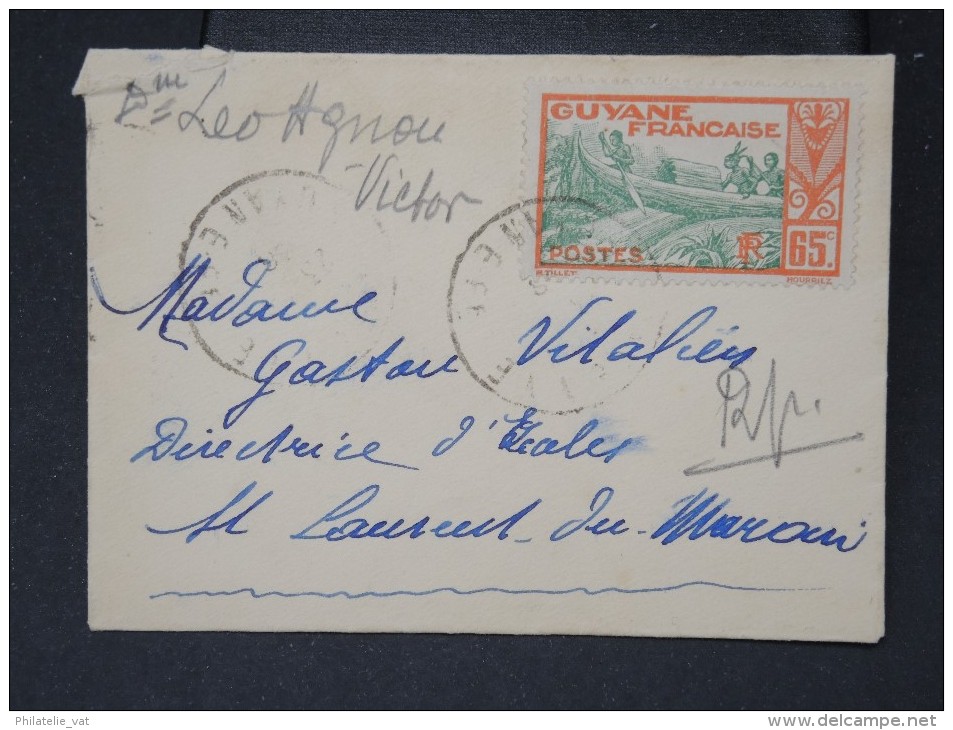 Leo Agnou
Victor
GUYANE
FRANCAISE
POSTES
RF
65c
Madame
Gaston Vitalien
Directrice d'Ecoles
St Laurent-du-Maroni
Philatelie_vat
www.delcampe.net